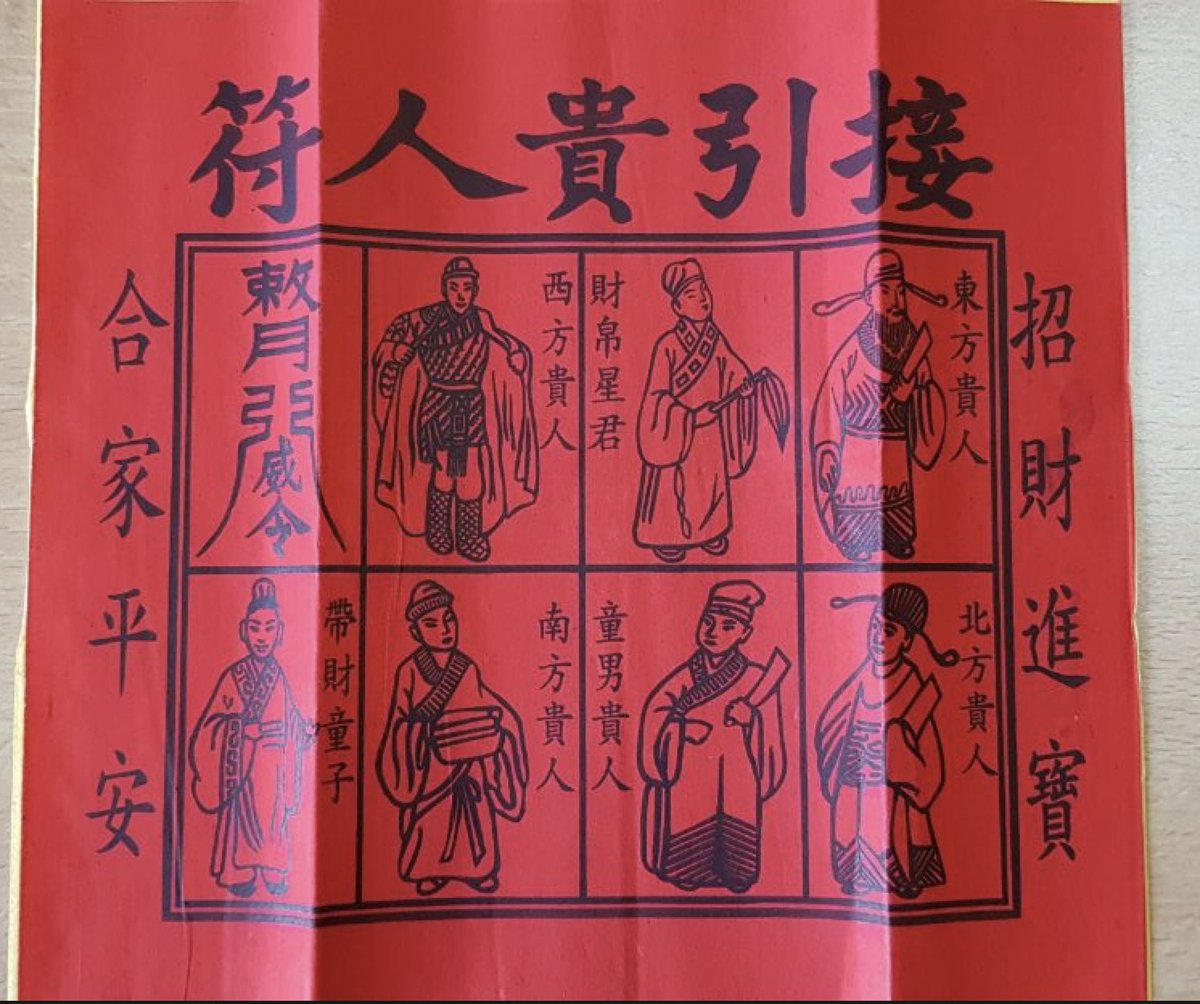 接引貴人符
招財進寶
東方貴人
財帛星君
西方貴人
敕月
威令
北方貴人
童男貴人
南方貴人
帶財童子
合家平安